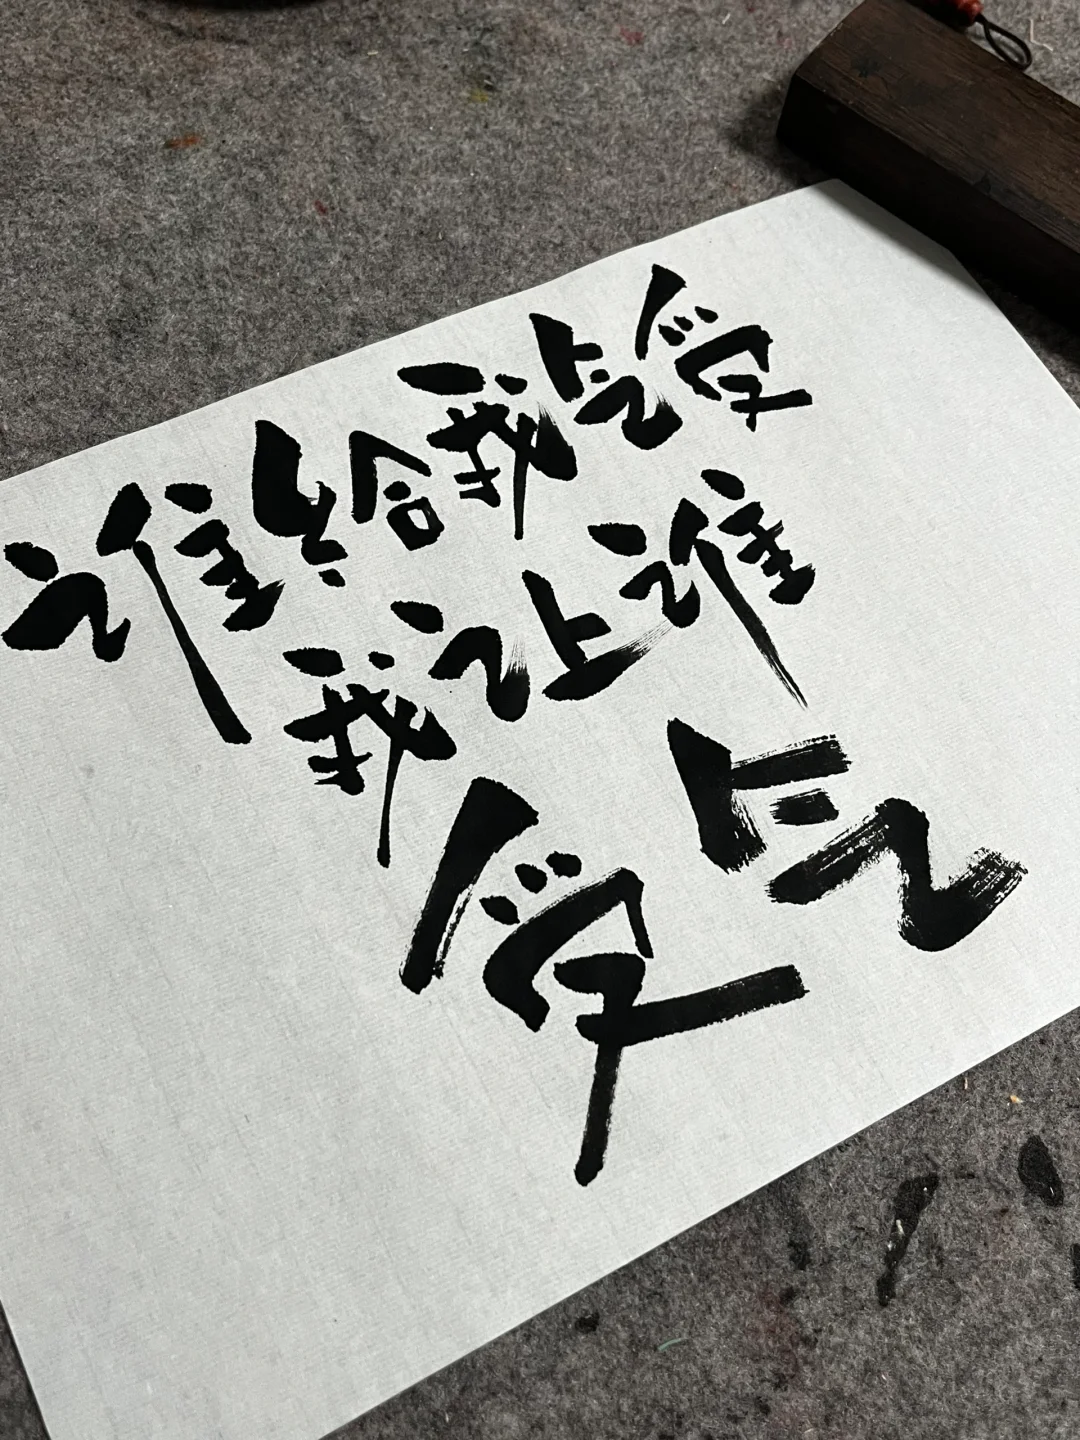 谁给我气受
我让谁
受气